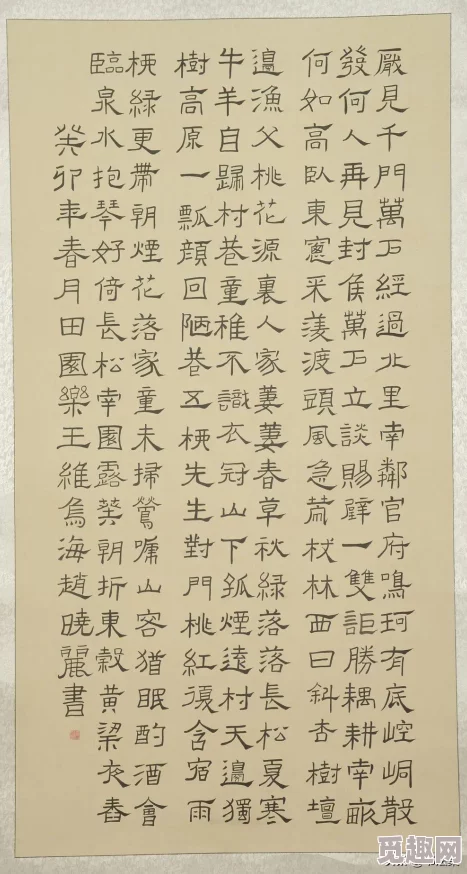 厭見千門萬戶經過北里南鄰官府鳴珂有底崆峒散
發何人再見封侯萬戶立談賜璧一雙詎勝耦耕南畝
何如高臥東窗采菱渡頭風急策杖林西日斜杏樹壇
邊漁父桃花源裏人家萋萋春草秋綠落落長松夏寒
牛羊自歸村巷童稚不識衣冠山下孤煙遠村天邊獨
樹高原一瓢顏回陋巷五柳先生對門桃紅復含宿雨
柳綠更帶朝煙花落家童未掃鶯嗁山客猶眠酌酒會
臨泉水抱琴好倚長松南園露葵朝折東穀黃粱夜舂
癸卯年春月田園樂王維烏海趙曉麗書
觅趣网